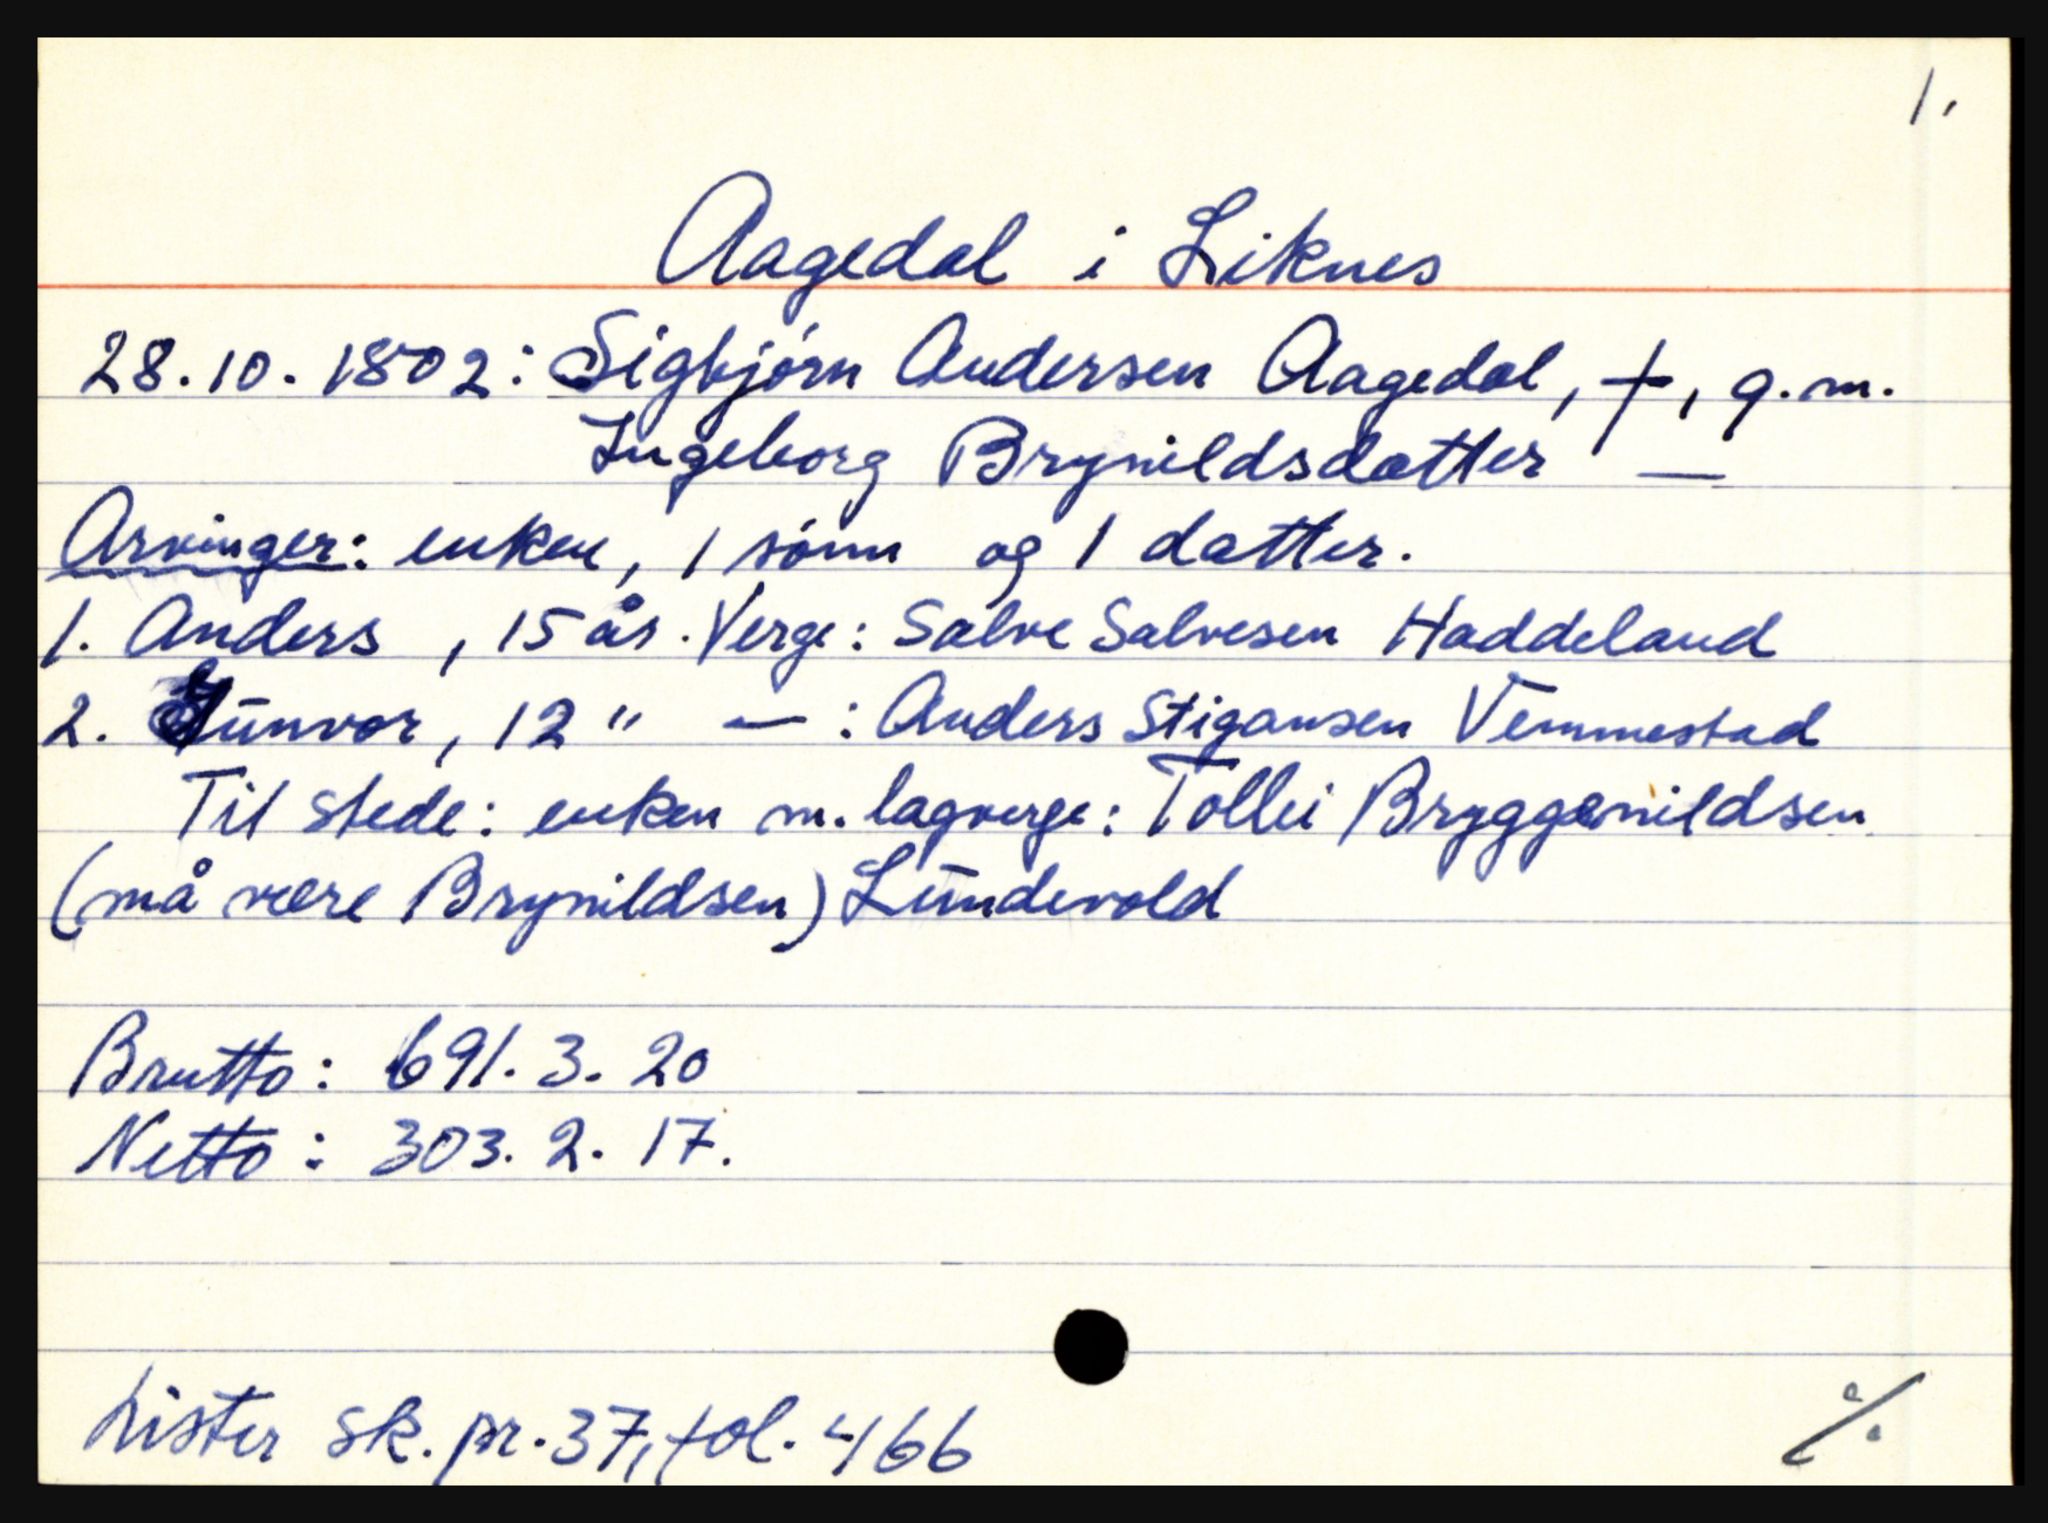 1.
Aagedal i Liknes
28.10.1802: Sigbjørn Andersen Aagedal, †, g.m.
Ingeborg Brynildsdatter —
Arvinger: enken, 1 sønn og 1 datter.
1. Anders , 15 år. Verge: Salve Salvesen Haddeland
2. Gunvor, 12 " — : Anders Stigansen Vemmestad
Til stede: enken m. lagverge: Tollei Bryggenildsen
(må være Brynildsen) Lundevold
Brutto: 691. 3. 20
Netto: 303. 2. 17.
Lister sk. pr. 37, fol. 466
%